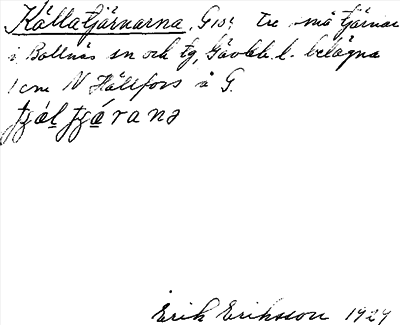 Källatjärnarna, G10: Tre små tjärnar
i Bollnäs sn och tg, Gävleb. l. belägna
1 cm N Hällfors å G.
Erik Eriksson 1929